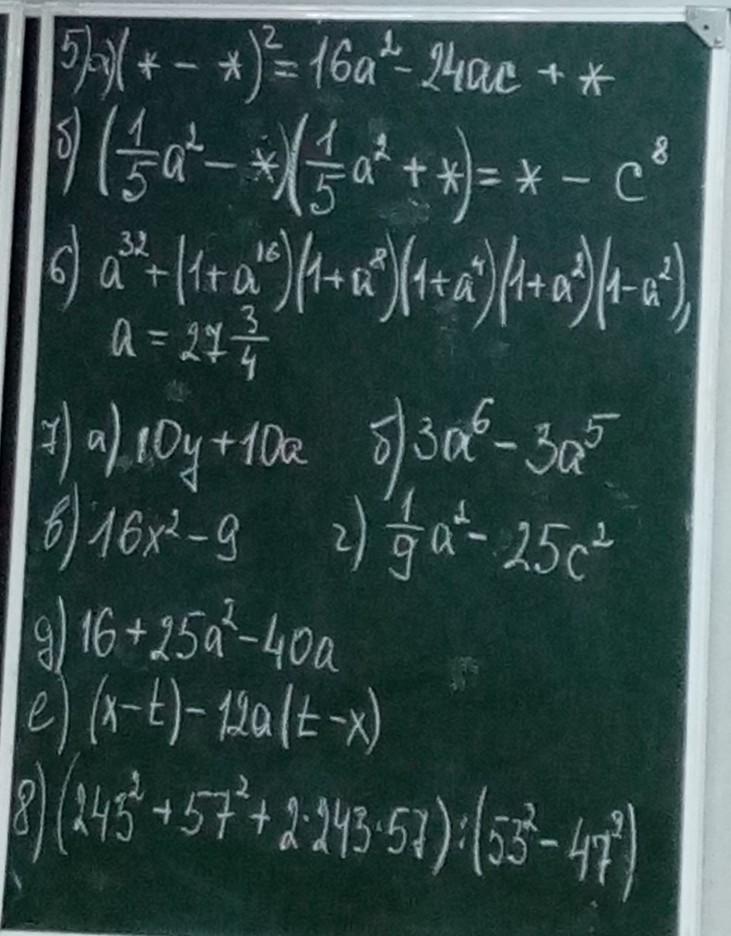 5) а) (* - *)² = 16a² - 24ac + *
б) (1/5 a² - *)(1/5 a² + *) = * - c⁸
6) a³² + (1+a¹⁶)(1+a⁸)(1+a⁴)(1+a²)(1-a²),
a = 27 3/4
7) а) 10y + 10a б) 3a⁶ - 3a⁵
в) 16x² - 9 г) 1/9 a² - 25c²
д) 16 + 25a² - 40a
е) (x-t) - 12a(t-x)
8) (243² + 57² + 2·243·57) : (53² - 47²)